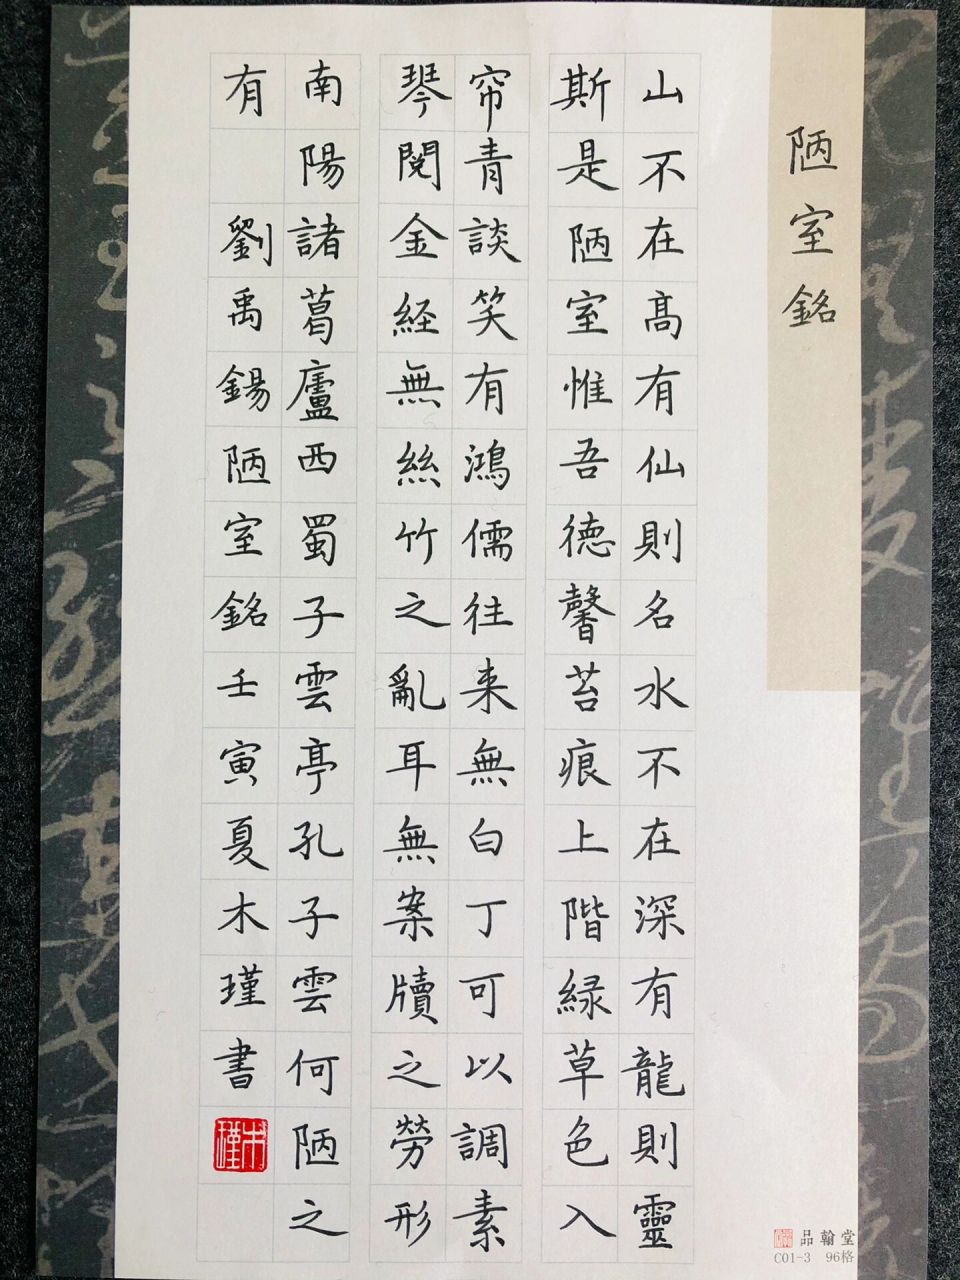 陋室銘
山不在高有仙則名水不在深有龍則靈
斯是陋室惟吾德馨苔痕上階緑草色入
帘青談笑有鴻儒往来無白丁可以調素
琴閲金経無絲竹之亂耳無案牘之勞形
南陽諸葛廬西蜀子雲亭孔子雲何陋之
有 劉禹錫陋室銘壬寅夏木瑾書
木瑾
品翰堂
C01-3 96格